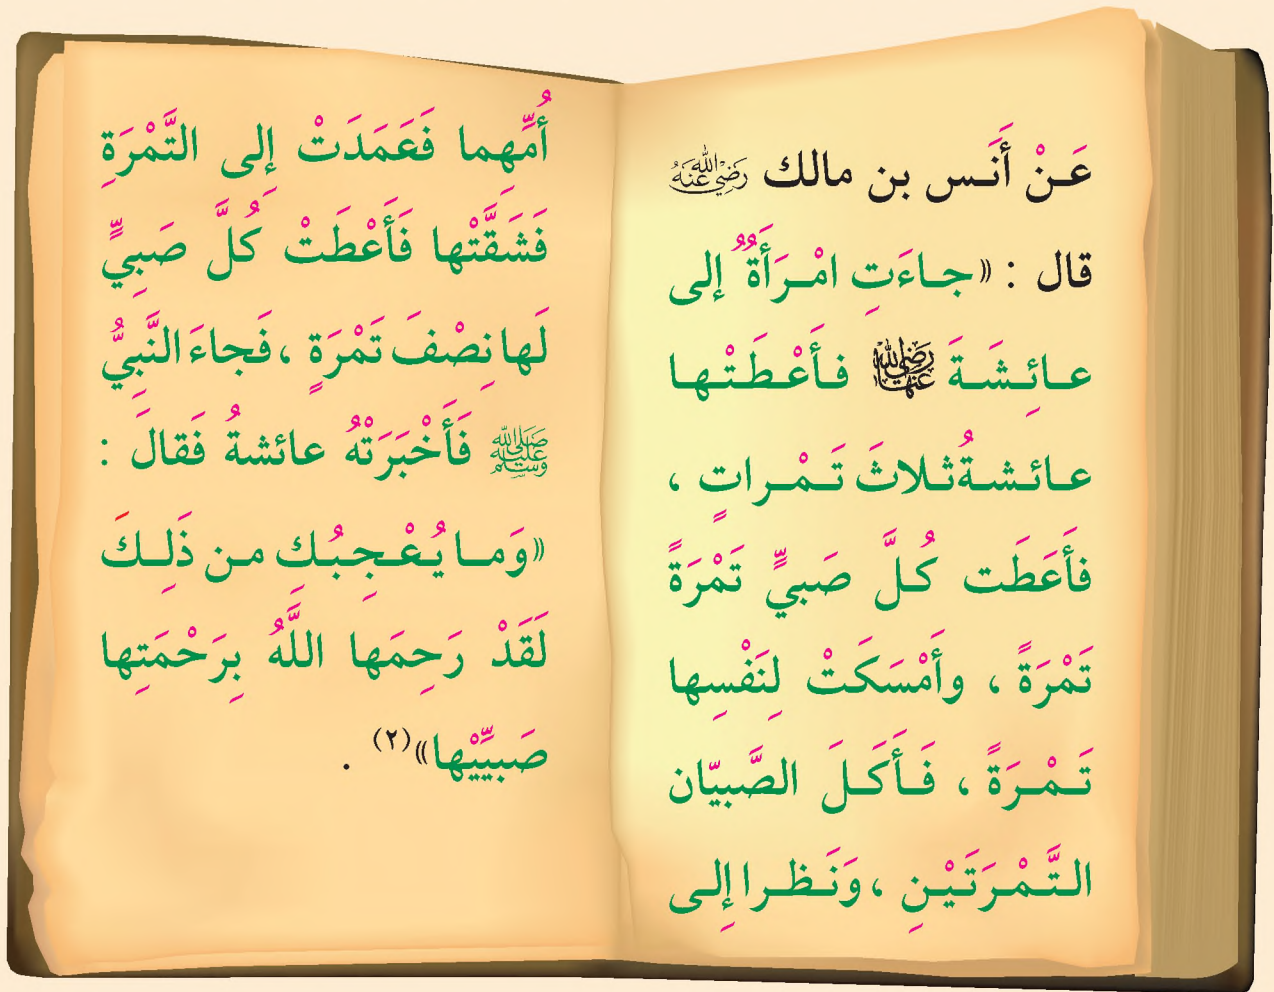 عَـنْ أَنَـس بن مالك رَضِيَ اللَّهُ عَنْهُ
قال : «جـاءَتِ امْـرَأَةٌ إلى
عـائِـشَـةَ رَضِيَ اللَّهُ عَنْهَا فـأَعْـطَـتْـهـا
عـائـشـةُ ثـلاثَ تَـمْـراتٍ ،
فأَعَطَت كُـلَّ صَبيٍّ تَمْرَةً
تَمْرَةً ، وأَمْسَكَتْ لِنَفْسِها
تَـمْـرَةً ، فَـأَكَـلَ الصَّبيّان
الـتَّـمْـرَتَـيْـنِ ، وَنَـظـرا إِلـى
أُمِّهِما فَعَمَدَتْ إِلى التَّمْرَةِ
فَشَقَّتْها فَأَعْطَتْ كُلَّ صَبِيٍّ
لَها نِصْفَ تَمْرَةٍ ، فَجاءَ النَّبِيُّ
ﷺ فَأَخْبَرَتْهُ عائشةُ فَقالَ :
«وَمـا يُـعْـجِـبُـكِ مـن ذَلِـكَ
لَقَدْ رَحِمَها اللَّهُ بِرَحْمَتِها
صَبيِّيْها»(٢) .